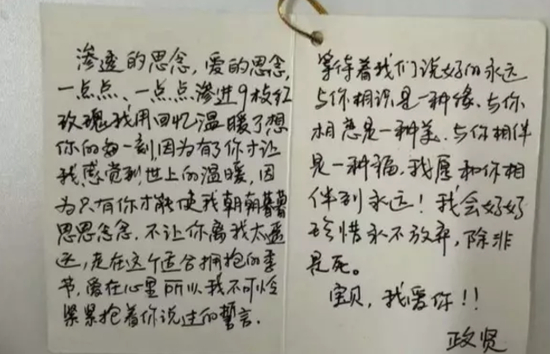 渗透的思念，爱的思念，
一点点、一点点渗进9枚红
玫瑰我用回忆温暖了想
你的每一刻，因为有了你才让
我感觉到世上的温暖，因
为只有你才能使我朝朝暮暮
思思念念．不让你离我太遥
远，走在这个适合拥抱的季
节，爱在心里所以我不可怜
紧紧抱着你说过的誓言．
等待着我们说好的永远
与你相识是一种缘、与你
相恋是一种美、与你相伴
是一种福，我愿和你相
伴到永远！我会好好
珍惜永不放弃，除非
是死。
宝贝，我爱你！！
政贤